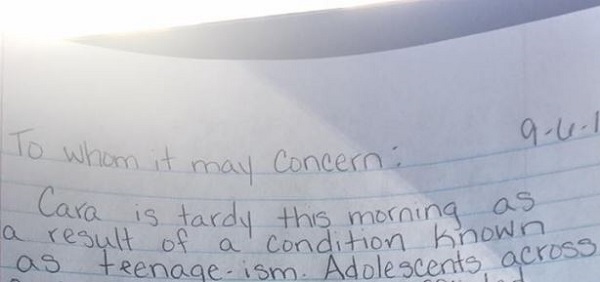 9-6-1
To whom it may concern:
Cara is tardy this morning as
a result of a condition known
as teenage-ism. Adolescents across